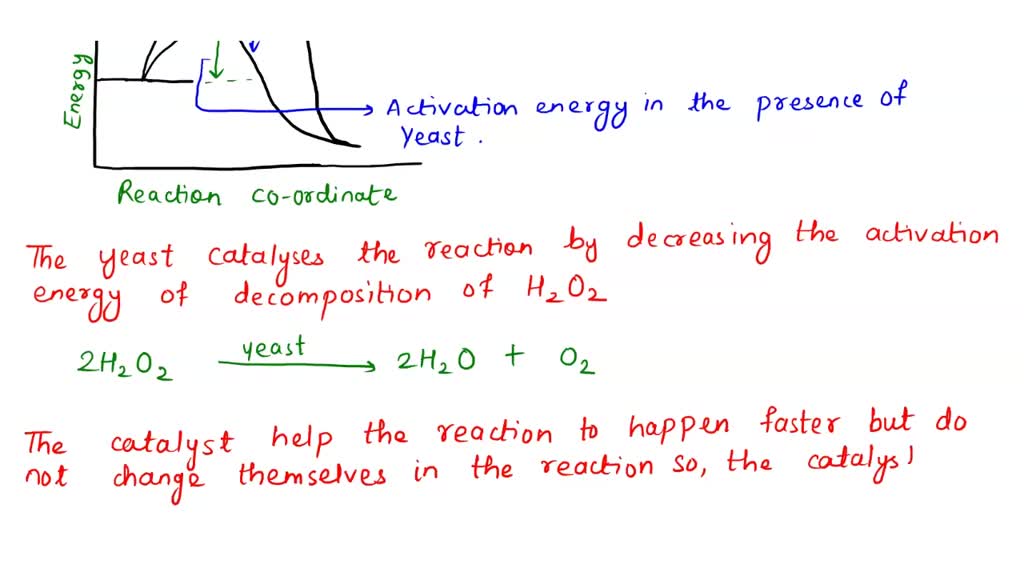 Energy
Activation energy in the presence of
yeast .
Reaction co-ordinate
The yeast catalyses the reaction by decreasing the activation
energy of decomposition of H₂O₂
2H₂O₂ yeast → 2H₂O + O₂
The catalyst help the reaction to happen faster but do
not change themselves in the reaction so, the catalys